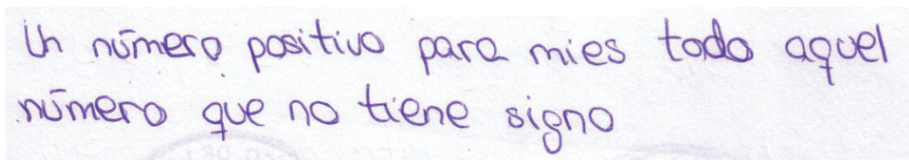 Un número positivo para mies todo aquel
número que no tiene signo